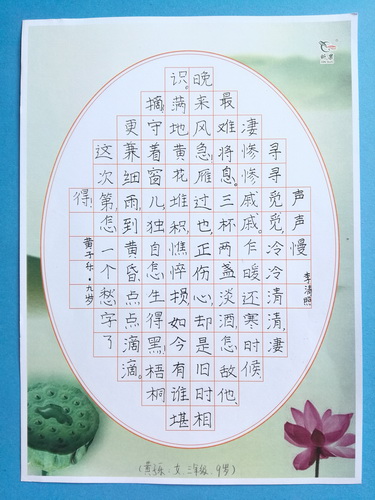 声声慢
李清照
寻寻觅觅,冷冷清清,凄
凄惨惨戚戚。乍暖还寒时候
最难将息。三杯两盏淡酒,怎敌他,
晚来风急,雁过也,正伤心,却是旧时相
识。满地黄花堆积,憔悴损,如今有谁堪
摘,守着窗儿,独自怎生得黑,梧桐
更兼细雨,到黄昏点点滴滴。
这次第,怎一个愁字了
得,
黄子乐·九岁
(黄子乐 女 三年级 9岁)